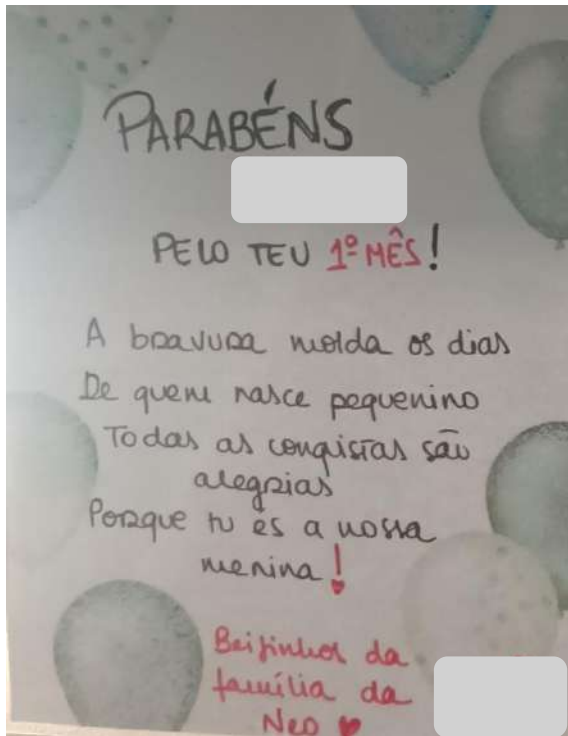 PARABÉNS
PELO TEU 1º MÊS!
A bravura molda os dias
De quem nasce pequenino
Todas as conquistas são
alegrias
Porque tu és a nossa
menina!
Beijinhos da
família da
Neo ♥